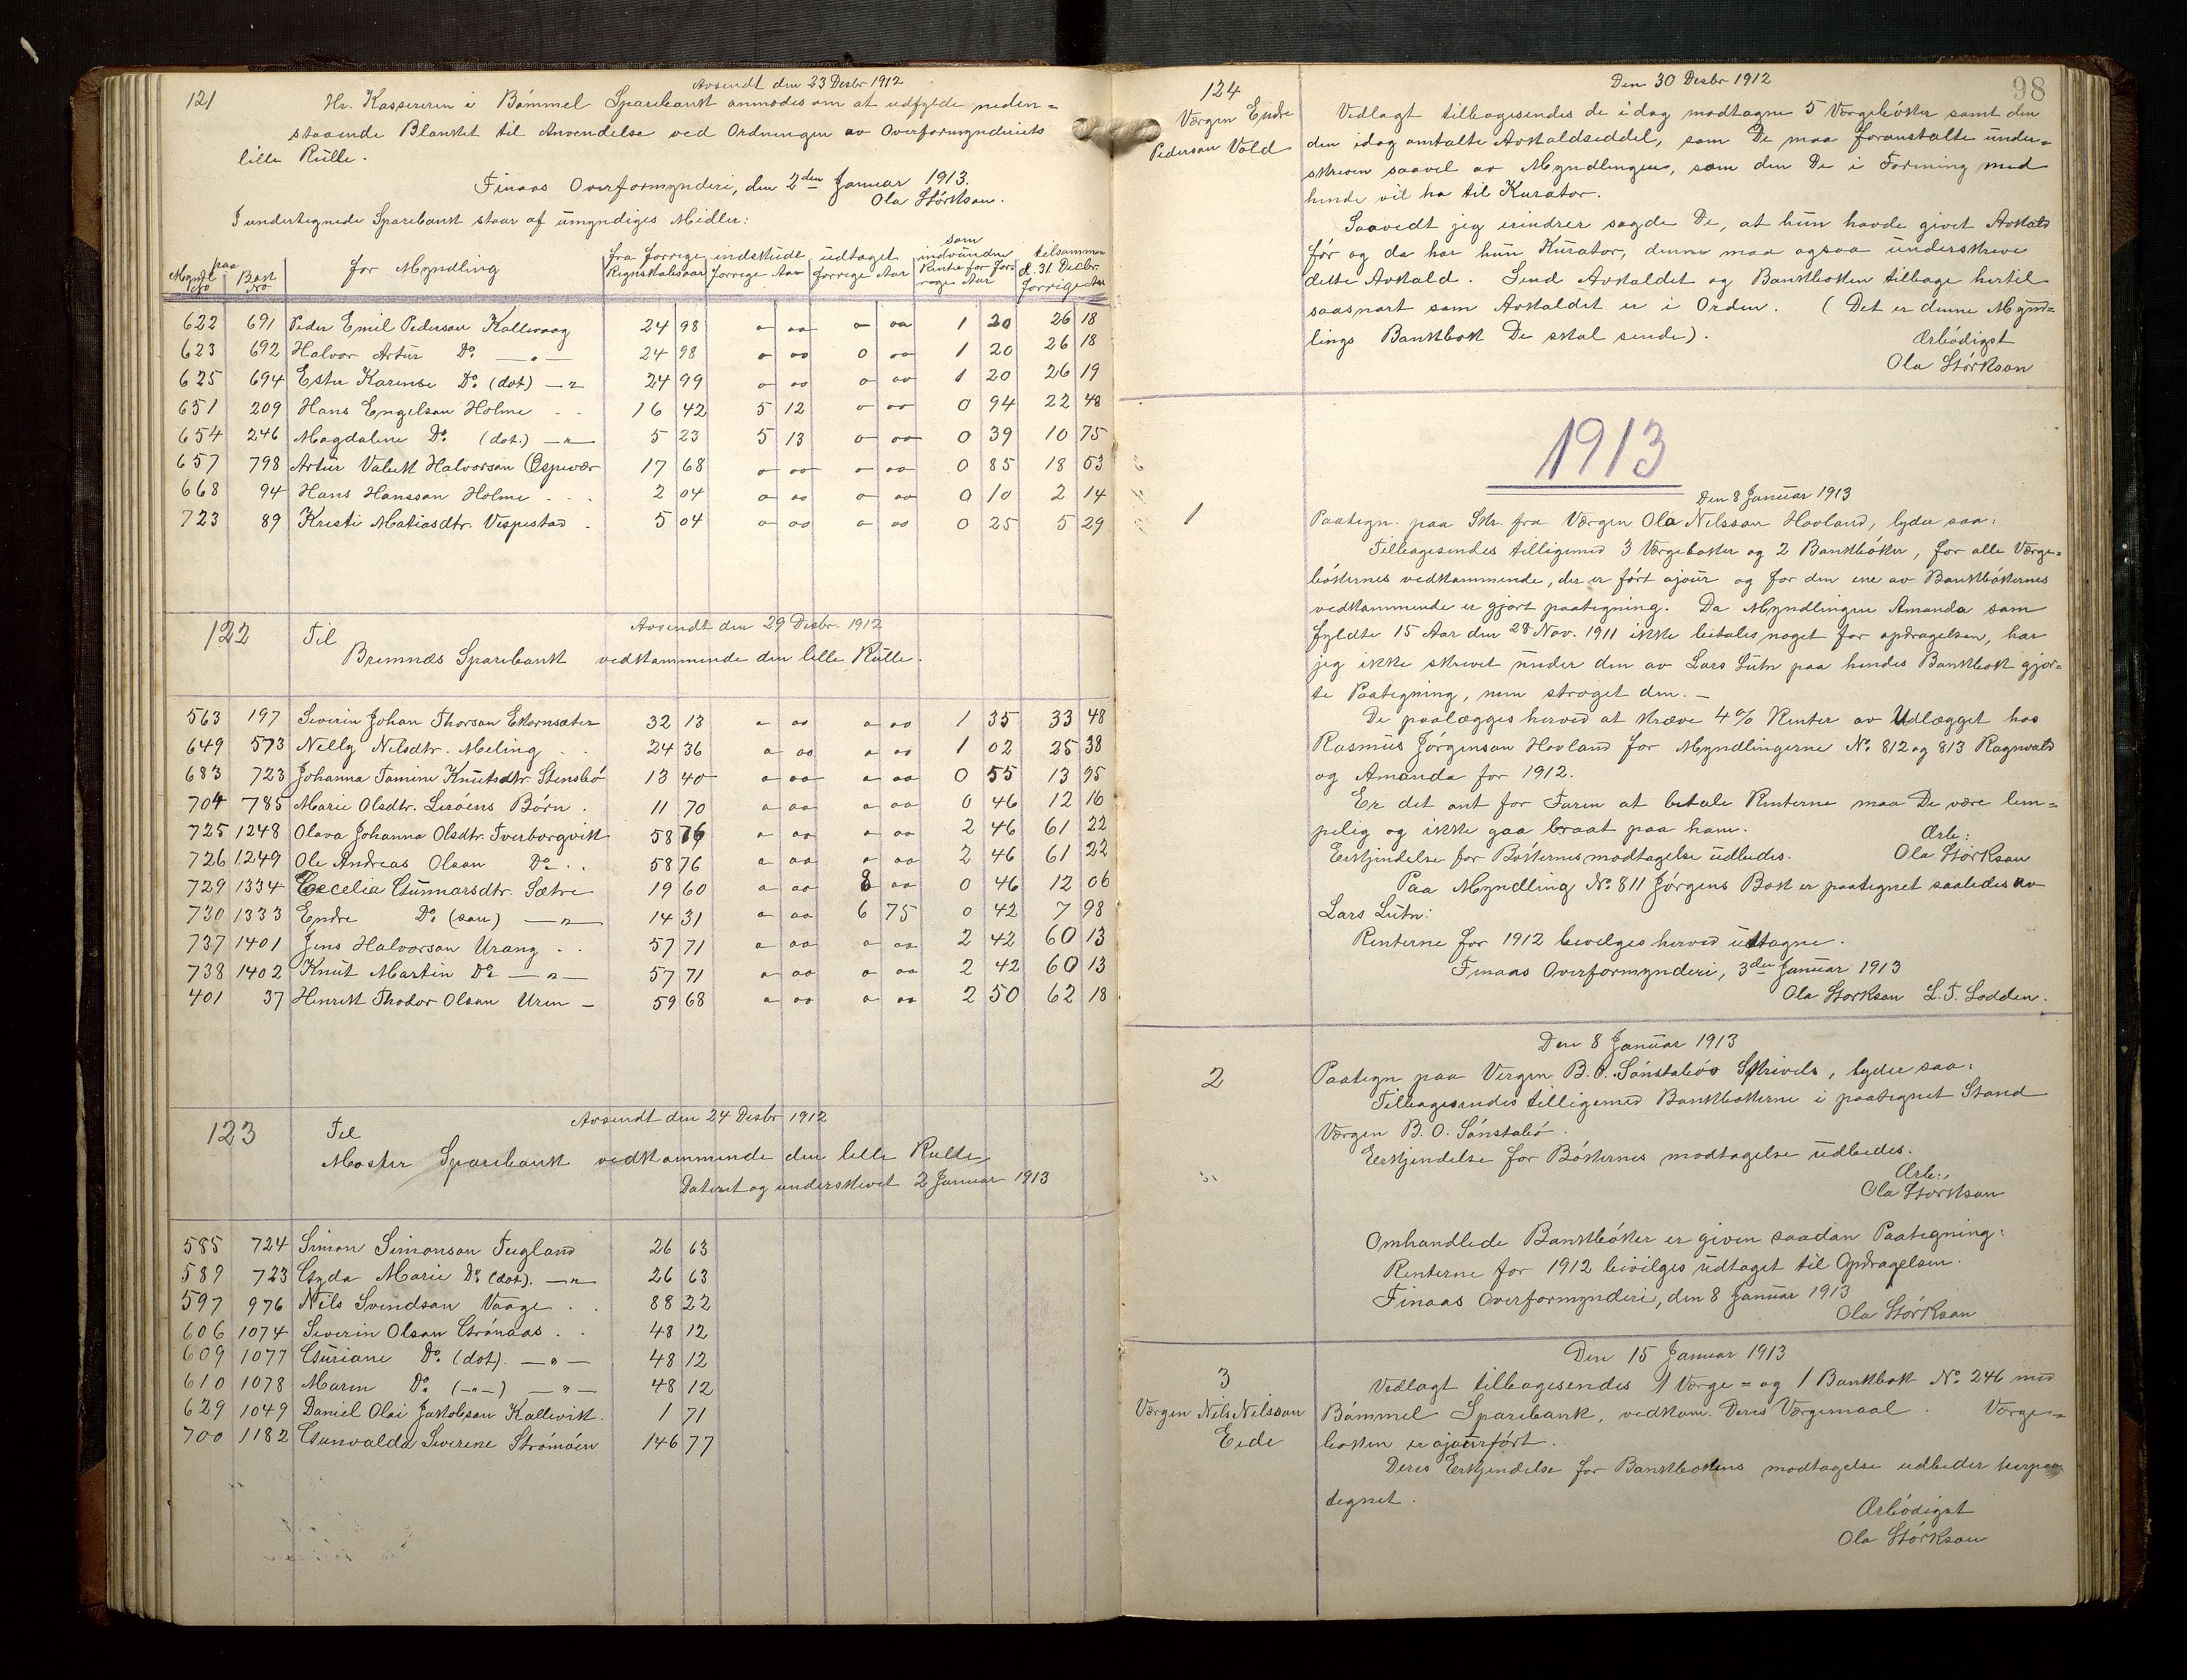 Avsendt den 23 Desbr 1912
121 Hr. Kassereren i Bømmel Sparebank anmodes om at udfylde neden=
staaende Blanket til Anvendelse ved Ordningen av Overformynderiets
lille Rulle.
Finaas Overformynderi, den 2den Januar 1913.
Ola Størkson.
I undertegnede Sparebank staar af umyndiges Midler:
Myndl No paa Bank No for Myndling fra forrige Regnskabsaar indskudt forrige Aar udtaget forrige Aar som indvundne Renter for forrige Aar tilsammen d. 31. Decbr forrige Aar
622 691 Peder Emil Pederson Kallevaag 24 98 o oo o oo 1 20 26 18
623 692 Halvor Artur Do. — " — 24 98 o oo o oo 1 20 26 18
625 694 Ester Karense Do. (dot) — " 24 99 o oo o oo 1 20 26 19
651 209 Hans Engelson Holme . . 16 42 5 12 o oo 0 94 22 48
654 246 Magdaline Do. (dot.) — " — 5 23 5 13 o oo 0 39 10 75
657 798 Artur Valentk Halvorson Espevær 17 68 o oo o oo 0 85 18 53
668 94 Hans Hansson Holme . . . 2 04 o oo o oo 0 10 2 14
723 89 Kristi Matiasdtr. Vespestad . 5 04 o oo o oo 0 25 5 29
Avsendt den 29 Desbr. 1912
122 Til
Bremnæs Sparebank vedkommende den lille Rulle.
563 197 Severin Johan Thorson Ekornsæter 32 13 o oo o oo 1 35 33 48
649 573 Nelly Nilsdtr. Meling . . 24 36 o oo o oo 1 02 25 38
683 723 Johanna Tomine Knutsdtr. Stensbø 13 40 o oo o oo 0 55 13 95
704 785 Marie Olsdtr. Lerøens Børn . 11 70 o oo o oo 0 46 12 16
725 1248 Olava Johanna Olsdtr. Tverborgvik 58 76 o oo o oo 2 46 61 22
726 1249 Ole Andreas Olson Do. . . 58 76 o oo o oo 2 46 61 22
729 1334 Cecelia Gunnarsdtr. Sætre 19 60 o oo 8 oo 0 46 12 06
730 1333 Endre Do. (søn) — " — 14 31 o oo 6 75 0 42 7 98
737 1401 Jens Halvorson Urang . . 57 71 o oo o oo 2 42 60 13
738 1402 Knut Martin Do. — " — 57 71 o oo o oo 2 42 60 13
401 37 Henrik Thodor Olson Uren — 59 68 o oo o oo 2 50 62 18
Avsendt den 24 Desbr 1912
123 Til
Moster Sparebank vedkommende den lille Rulle,
Dateret og underskrevet 2 Januar 1913
585 724 Simon Simonson Tugland 26 63
589 723 Gyda Marie Do. (dot). — " — 26 63
597 976 Nils Svendson Vaage . . 88 22
606 1074 Severin Olson Grønaas . . 48 12
609 1077 Guriane Do. (dot). — " — 48 12
610 1078 Maren Do. (—"—) — " — 48 12
629 1049 Daniel Olai Jakobson Kallevik . 1 71
700 1182 Gunvalda Severine Strømøen 146 77
98
Den 30 Desbr 1912
124
Værgen Endre
Pederson Vold
Vedlagt tilbagesendes de idag modtagne 5 Værgebøker samt den
den idag omtalte Avkaldseddel, som De maa foranstalte under=
skreven saavel av Myndlingen, som den De i Forening med
hende vil ha til Kurator.
Saavidt jeg erindrer sagde De, at hun havde givet Avkald
før og da har hun Kurator, denne maa ogsaa underskrive
dette Avkald. Send Avkaldet og Bankboken tilbage hertil
saasnart som Avkaldet er i Orden. (Det er denne Mynd=
lings Bankbok De skal sende).
Ærbødigst
Ola Størkson
1913
Den 8 Januar 1913
1 Paategn. paa Skr. fra Værgen Ola Nilsson Hovland, lyder saa:
Tilbagesendes tilligemed 3 Værgebøker og 2 Bankbøker, for alle Værge=
bøkernes vedkommende, der er ført ajour og for den ene av Bankbøkernes
vedkommende er gjort paategning. Da Myndlingen Amanda som
fyldte 15 Aar den 28 Nov. 1911 ikke betales noget for opdragelsen, har
jeg ikke skrevet under den av Lars Lutn paa hendes Bankbok gjor=
te Paategning, men strøget den. —
De paalægges herved at kræve 4% Renter av Udlægget hos
Rasmus Jørgenson Hovland for Myndlingerne No. 812 og 813 Ragnvald
og Amanda for 1912.
Er det ont for Faren at betale Renterne maa De være lem=
pelig og ikke gaa braat paa ham.
Erkjendelse for Bøkernes modtagelse udbedes.
Ærb:
Ola Størkson
Paa Myndling No. 811 Jørgens Bok er paategnet saaledes av
Lars Lutn:
Renterne for 1912 bevilges herved uttagne.
Finaas Overformynderi, 3die Januar 1913
Ola Størkson L. T. Lodden.
Den 8 Januar 1913
2 Paategn paa Vergen B. O. Sønstabøs Skrivels, lyder saa:
Tilbagesendes tilligemed Bankbøkerne i paategnet Stand
Værgen B. O. Sønstabø.
Erkjendelse for Bøkernes modtagelse udbedes.
Ærb:,
Ola Størkson
Omhandlede Bankbøker er given saadan Paategning:
Renterne for 1912 bevilges udtaget til Opdragelsen.
Finaas Overformynderi, den 8 Januar 1913
Ola Størkson
Den 15 Januar 1913
3
Værgen Nils Nilsson
Eide
Vedlagt tilbagesendes 1 Værge= og 1 Bankbok No. 246 med
Bømmel Sparebank, vedkom. Deres Værgemaal. Værge=
boken er ajourført.
Deres Erkjendelse for Bankbokens modtagelse udbedes herpaa
tegnet.
Ærbødigst
Ola Størkson